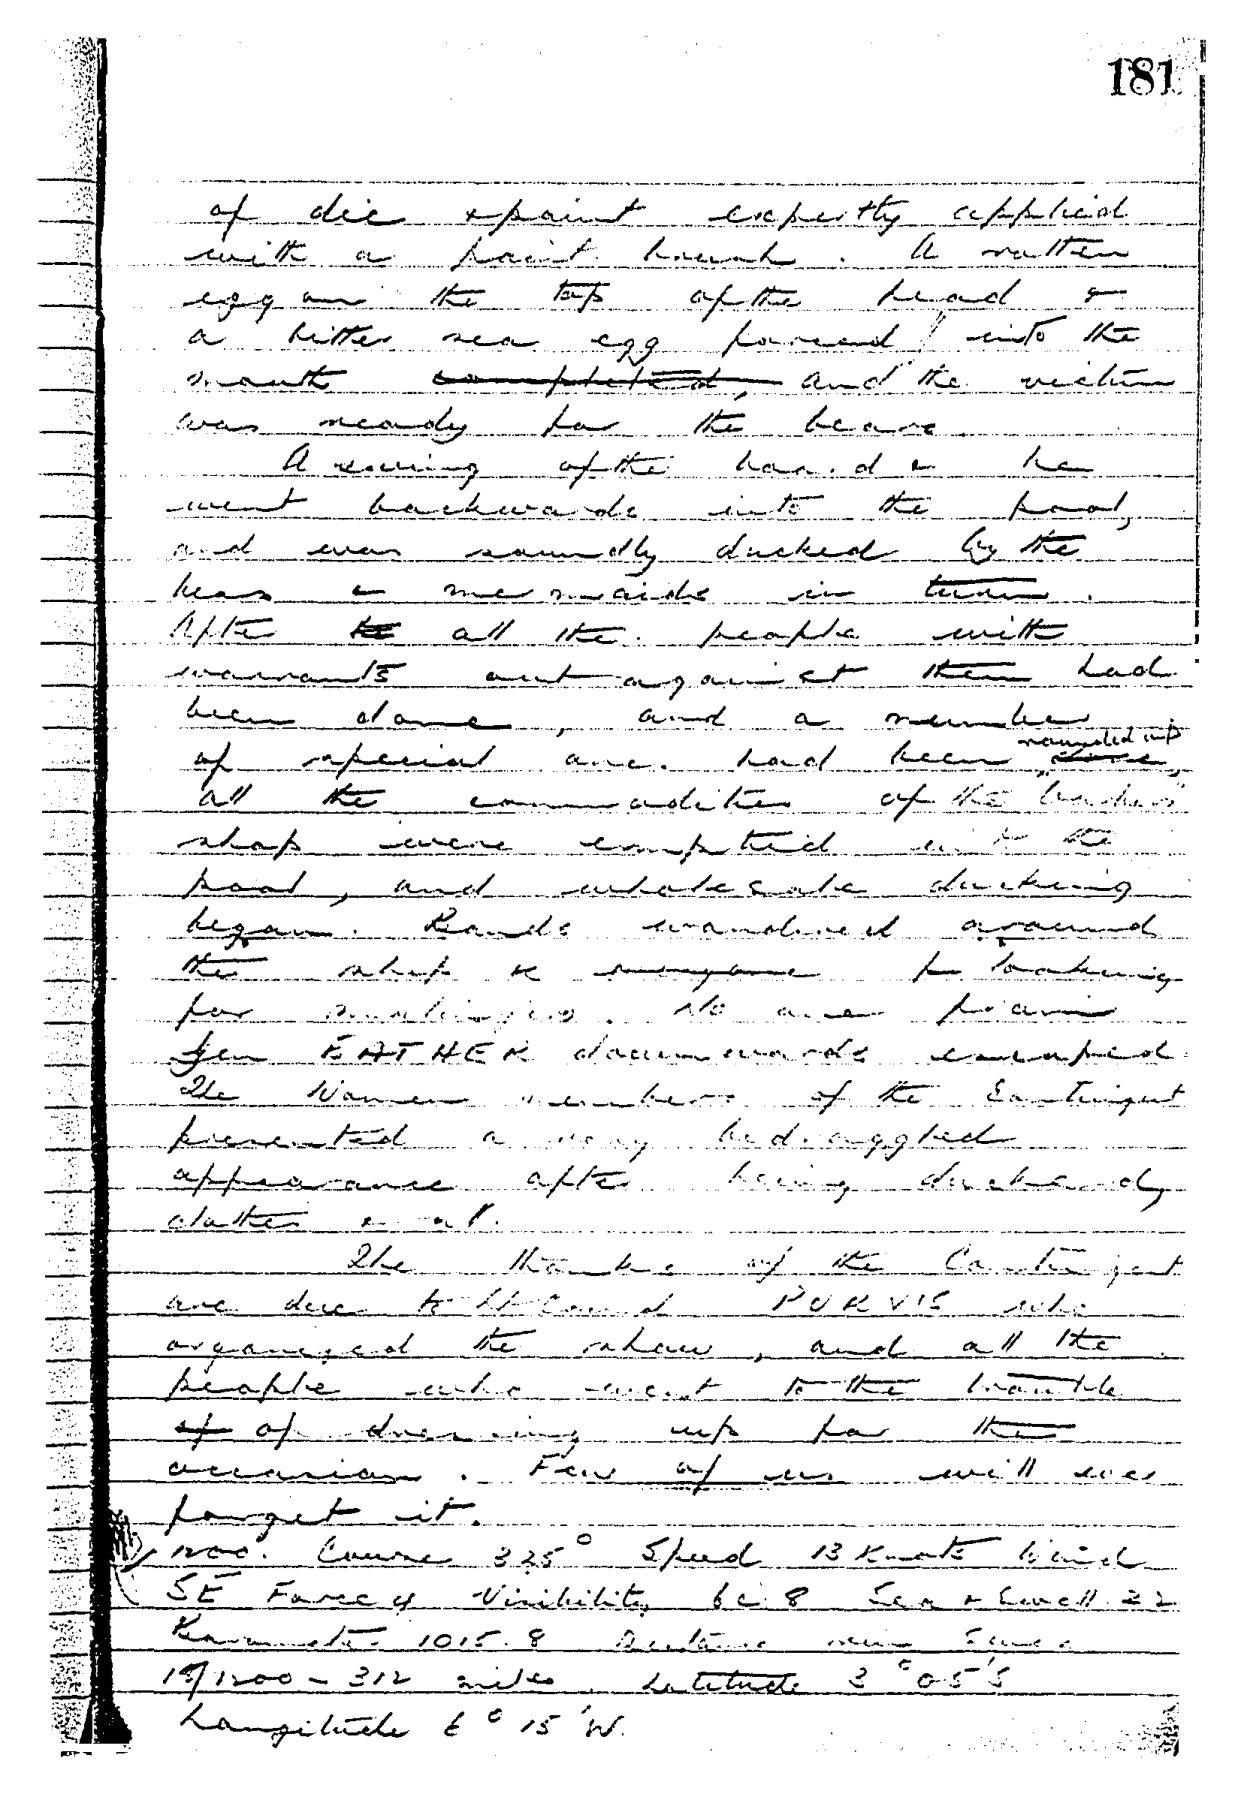 181
of dic & paint expertly applied
with a paint brush. A rotten
egg on the top of the head &
a bitter sea egg forced into the
mouth completed, and the victim
was ready for the bears.
A swing of the board & he
went backwards into the pool,
and was soundly ducked by the
bears & mermaids in turn.
After all the people with
warrants out against them had
been done, and a number
rounded up
of special ones had been done,
all the commodities of the barbers
shop were emptied into the
pool, and wholesale ducking
began. Bands wandered around
the ship & looking
for malingers. No one from
Gen EATHER downwards escaped
The Women members of the Contingent
presented a very bedraggled
appearance after being ducked,
clothes & all.
The thanks of the Contingent
are due to Lt Comd PURVIS who
organized the show, and all the
people who went to the trouble
of of dressing up for the
occasion. Few of us will ever
forget it.
1200. Course 325° Speed 13 Knots Wind
SE Force 4 Visibility bc 8 Sea & Swell 22
Barometer 1015.8 Distance run since
18/1200 – 312 miles. Latitude 3° 05'S
Longitude 6° 15'W.